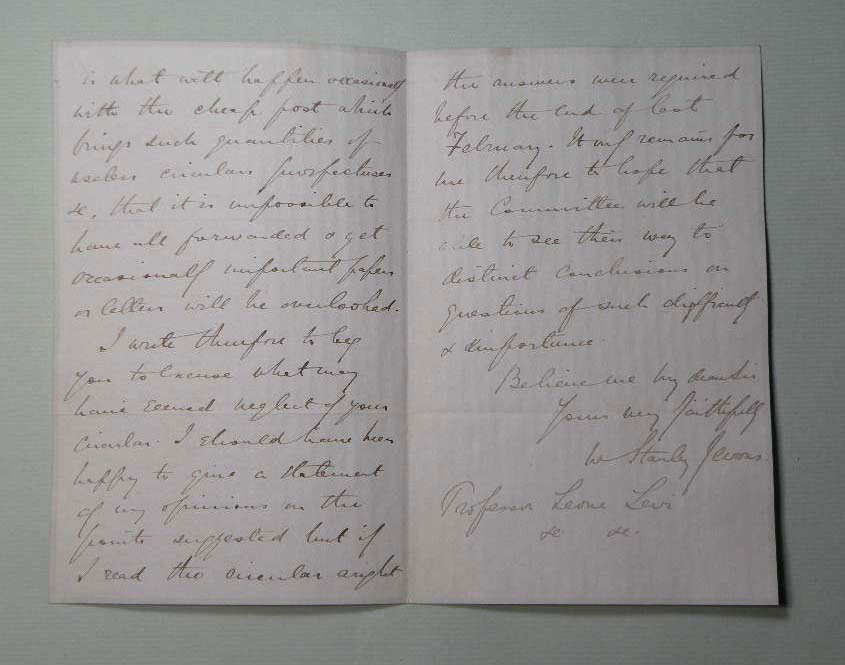 is what will happen occasionally
with the cheap post which
brings such quantities of
useless circulars prospectuses
&c, that it is impossible to
have all forwarded & yet
occasionally important papers
or letters will be overlooked.
I write therefore to beg
you to excuse what may
have seemed neglect of your
circular. I should have been
happy to give a statement
of my opinions on the
points suggested but if
I read the circular aright
the answers were required
before the end of last
February. It only remains for
me therefore to hope that
the Committee will be
able to see their way to
distinct conclusions on
questions of such difficulty
& importance.
Believe me my dear Sir
Yours very faithfully
W Stanley Jevons.
Professor Leone Levi
&c &c.